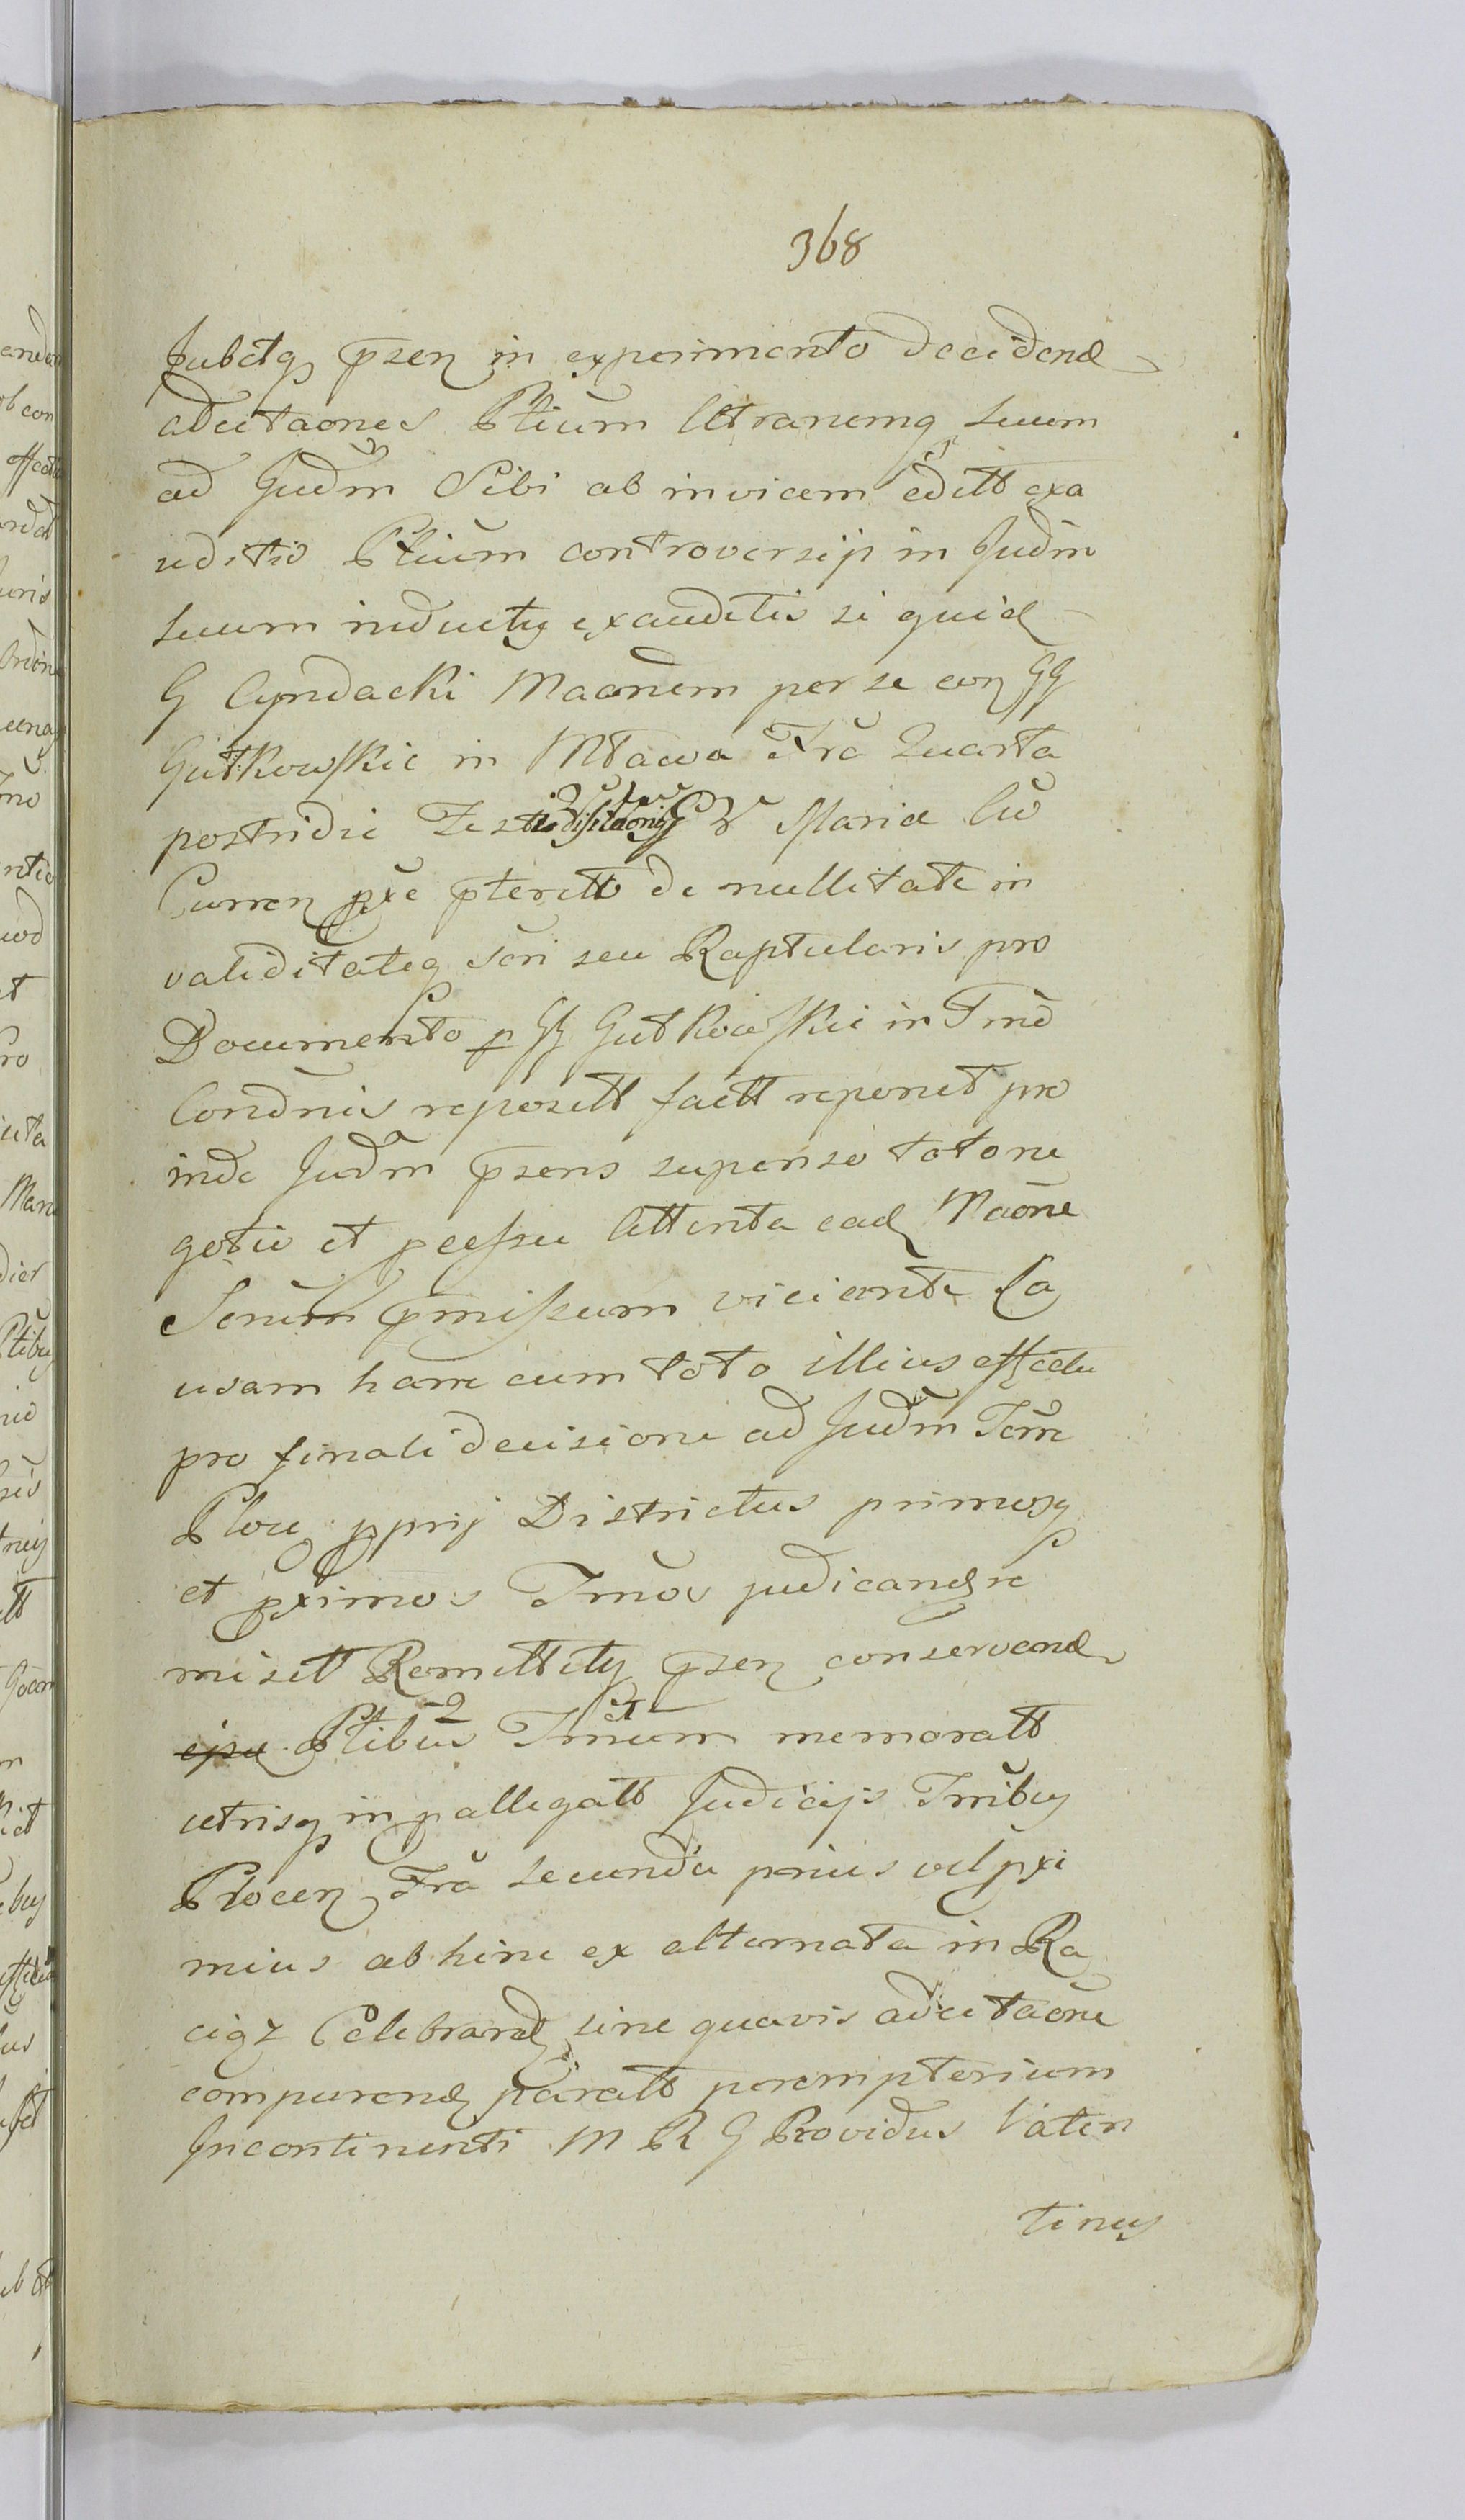 368
Jubetq psen in experimento decidend
adcitaones Ptium Utranemq suum
ad Judm Sibi ab invicem editt exa
uditis Ptium controversijs in Judm
suum inductis exauditis si quid
G Cyndacki Maonem per se con GG
Gutkowskie in Mława Fra Quarta
postridie Festi Visitaonis B V Mariæ
Curren pxe pteritt de nullitate in
validitateq Scri seu Raptularis pro
Documento p GG Gutkowskie in Tmo
Condnis reposett factt reponet pro
inde Judm psens supenso toto ne
gotio et pcessu Attenta ead Maone
Scrum pmissum viciante Ca
usam hanc cum toto illius effectu
pro finali decisione ad Judm Terre
Ploc pprij Districtus primosq
et pximos Tmos judicand re
misit Remittitq psen conservand
Ptibus Tmum memoratt
utrisq in pallegatt Judicijs Tmibus
Plocen Fra secunda prius vel pxi
mius abhinc ex alternata in Ra
ciąz Celebrand sine quavis adcitaone
comparend paratt peremptorium
Incontinenti M R G Providus Valen
tinus